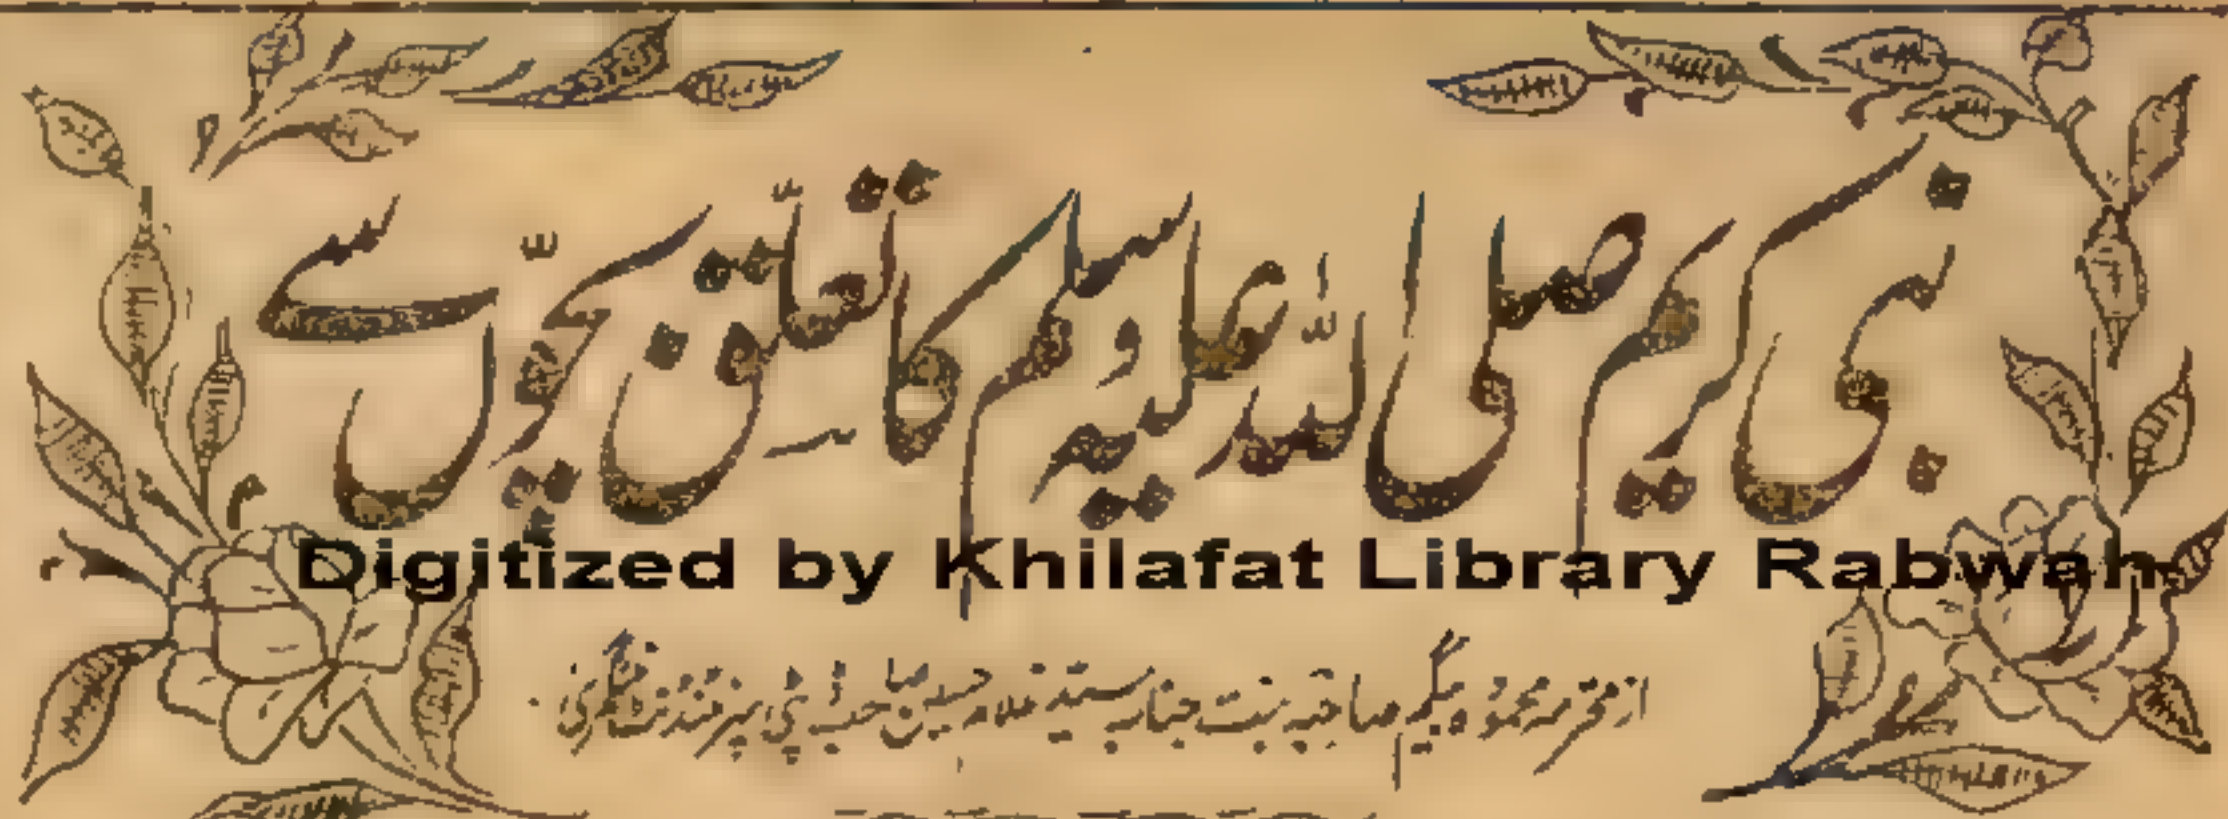 نبی کریم صلی اللہ علیہ وسلم کا تعلق بچوں سے
Digitized by Khilafat Library Rabwah
از محترمہ محمودہ بیگم صاحبہ بنت جناب سید غلام حسین صاحب پی سپرنٹنڈنٹ